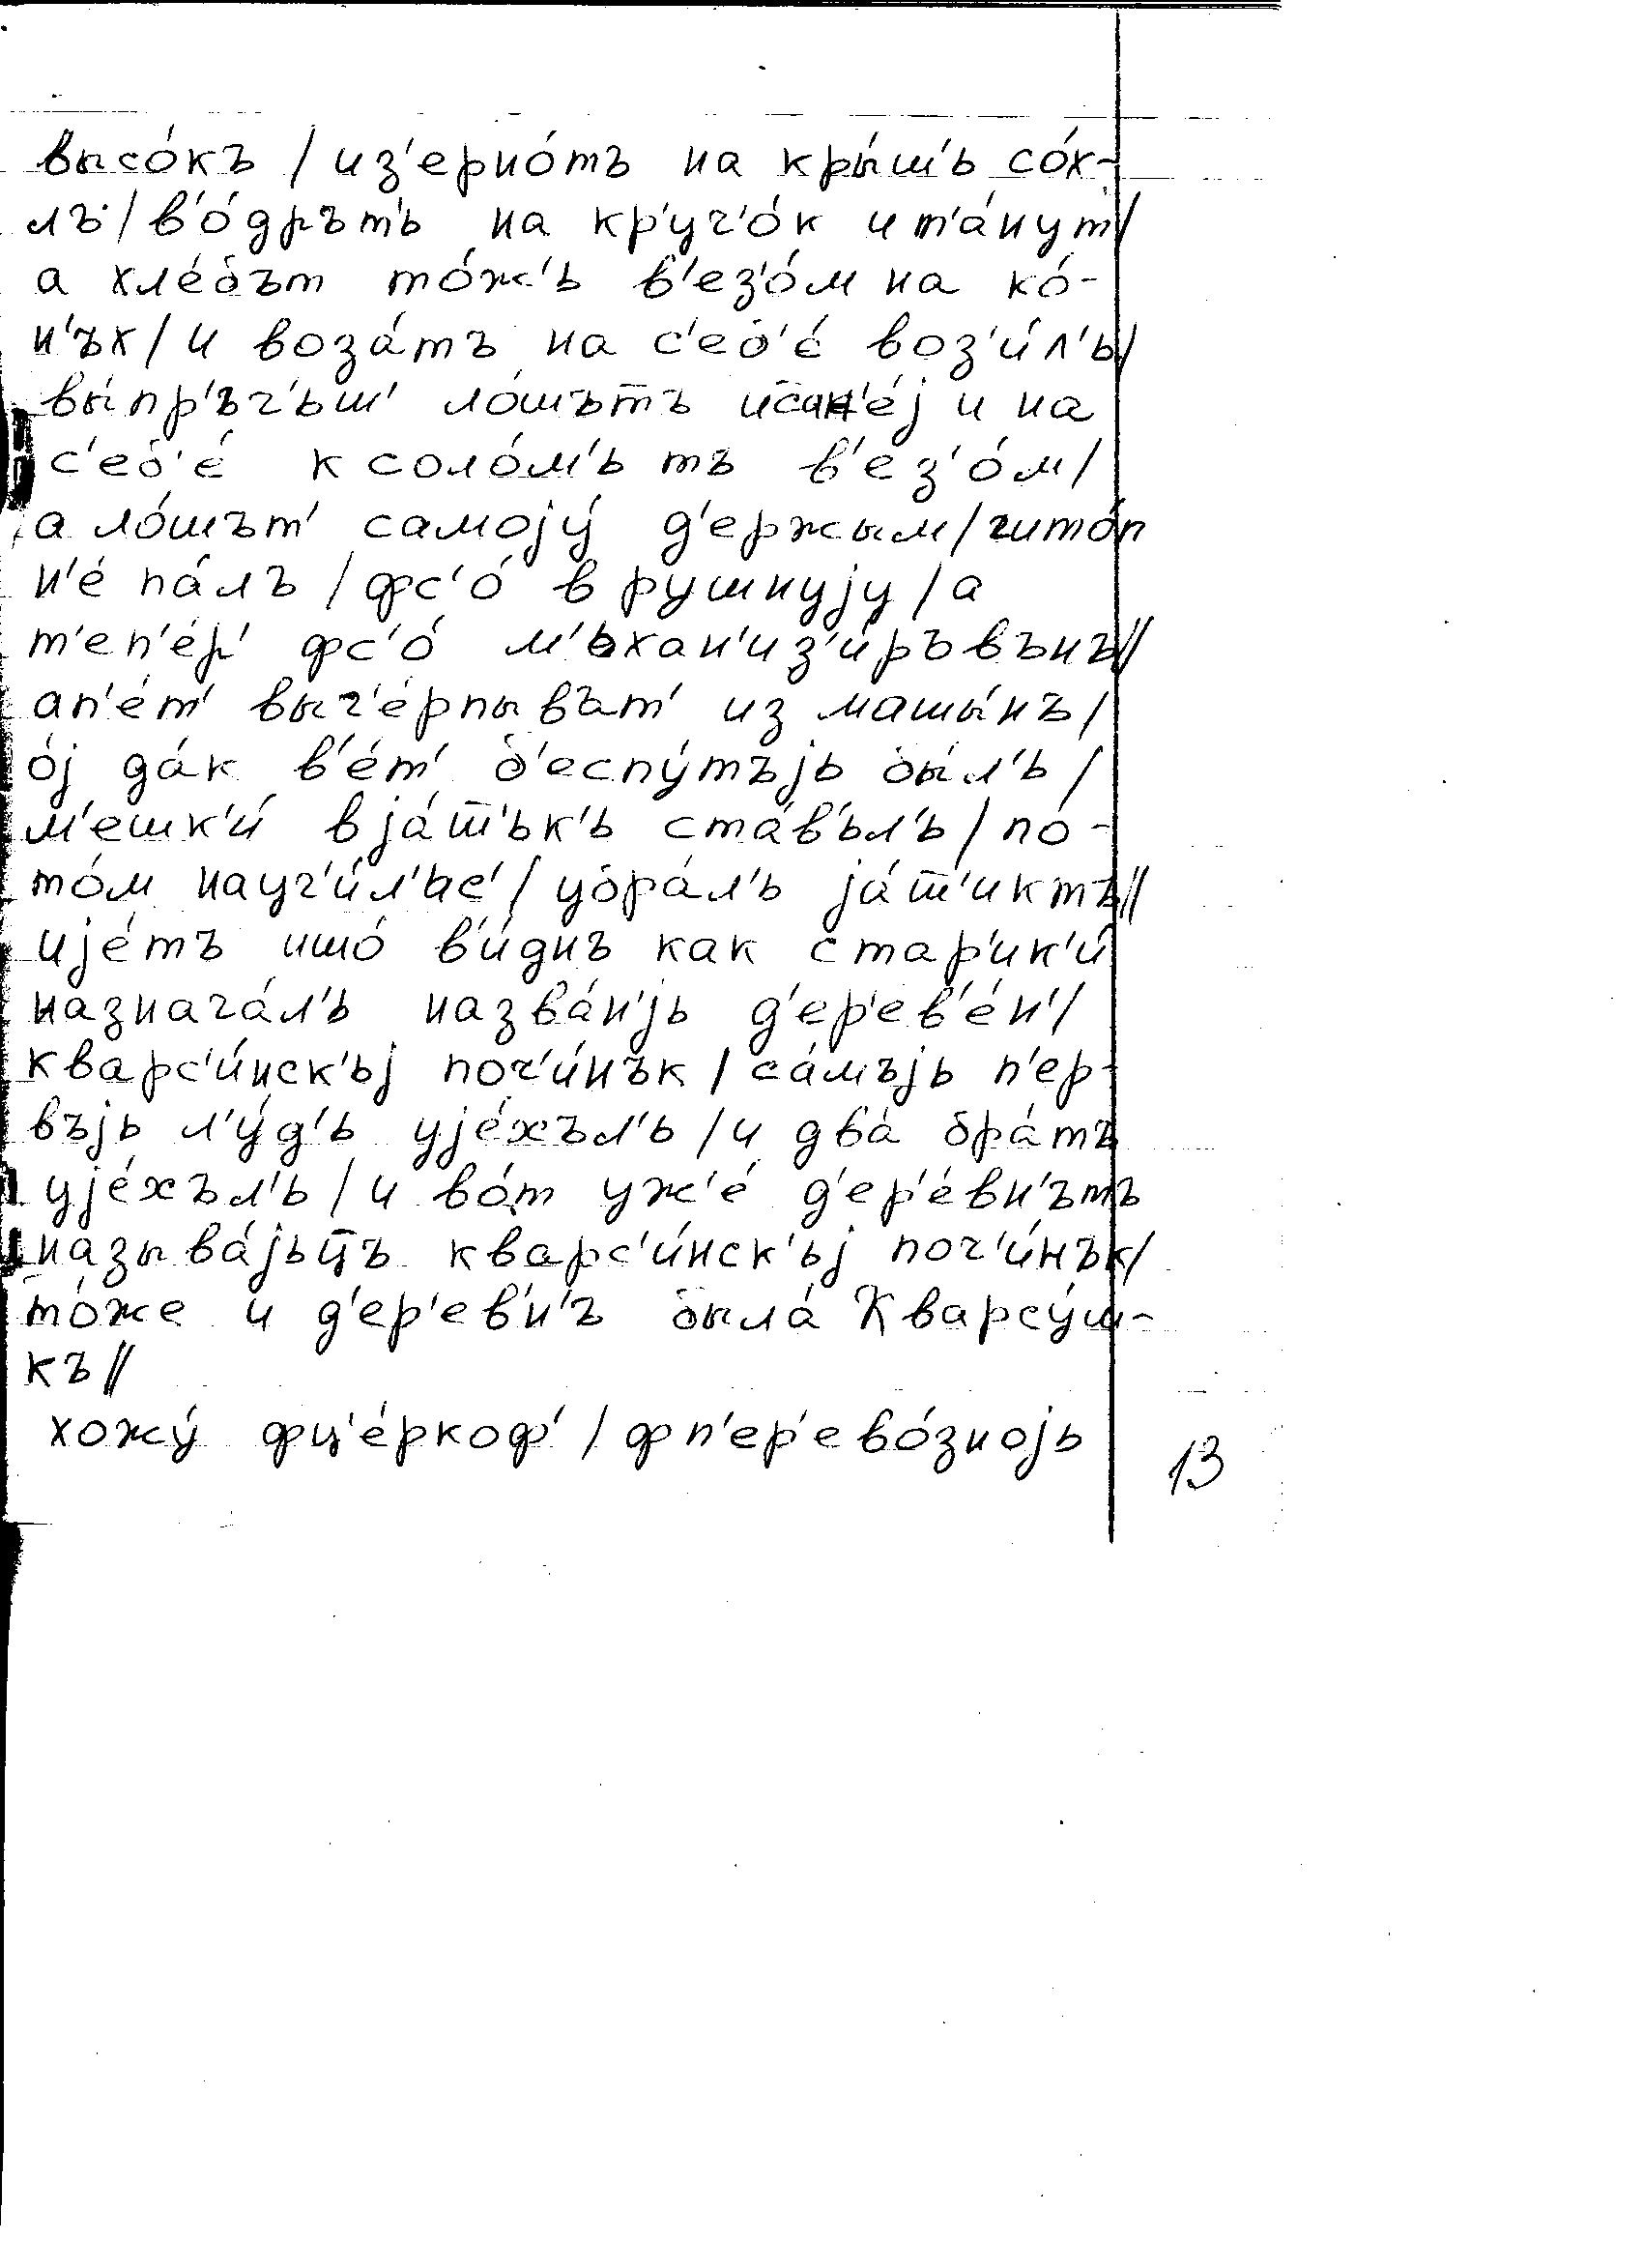 высо́къ / из'ерно́тъ на кры́ш'ь со́х-
лъ / в'о́дръть на кр'уч'о́к и т'а́нут /
а хле́бът то́ж'ь в'ез'о́м на ко́-
н'ъх / и воза́тъ на с'еб'е́ воз'и́л'ь /
вы́пр'ъч'ьш' ло́шътъ и сан'е́ј и на
с'еб'е́ к соло́м'ь тъ в'ез'о́м /
а ло́шът' самоју́ д'ержым / читоп
н'е́ па́лъ / фс'о́ в рушнују / а
т'еп'е́р' фс'о́ м'ьхан'из'и́ръвънъ //
ап'е́т' выч'е́рпывът' из машы́нъ /
о́ј да́к в'е́т' б'еспу́тъјь бы́л'ь /
м'ешк'и́ в ја́т'ьк'ь ста́в'ьл'ь / по-
то́м науч'и́л'ьс' / убра́л'ь ја́т'иктъ //
ије́тъ ишо́ в'и́днъ как стар'ик'и́
назнача́л'ь назва́н'јь д'ер'ев'е́н' /
кварс'и́нск'ьј поч'и́нък / са́мъјь п'ер-
въјь л'у́д'ь ује́хъл'ь / и два́ бра́тъ
ује́хъл'ь / и во́т уж'е́ д'ер'е́вн'ътъ
называ́јьцъ кварс'и́нск'ьј поч'и́нък /
то́же и д'ер'евн'ъ была́ Кварсу́ш-
къ //
хожу́ фц'е́ркоф' / фп'ер'ево́зној̇ь
13